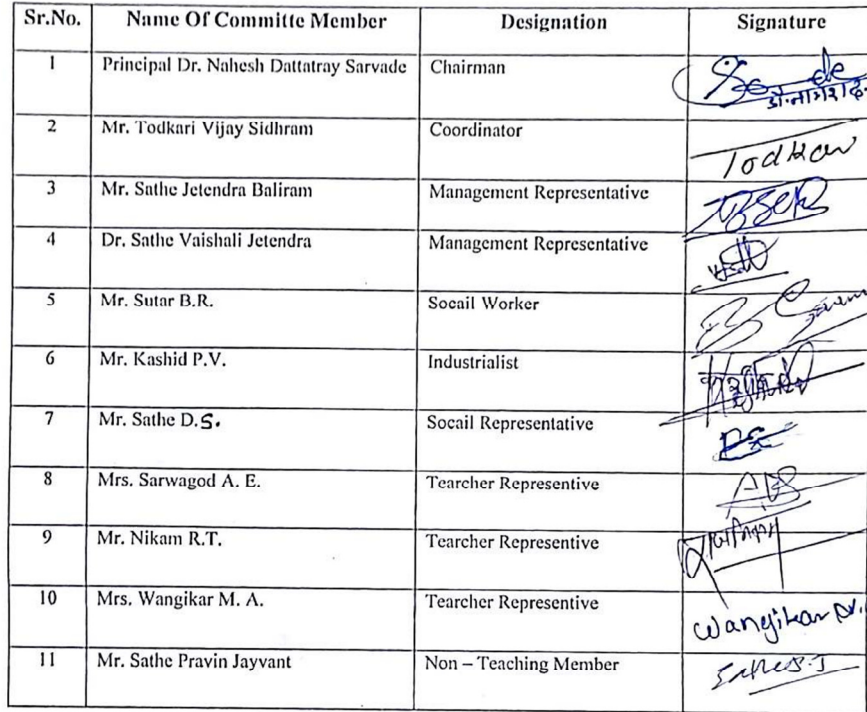 Sr.No. Name Of Committe Member Designation Signature
1 Principal Dr. Nahesh Dattatray Sarvade Chairman
2 Mr. Todkari Vijay Sidhram Coordinator Todkar
3 Mr. Sathe Jetendra Baliram Management Representative
4 Dr. Sathe Vaishali Jetendra Management Representative
5 Mr. Sutar B.R. Socail Worker
6 Mr. Kashid P.V. Industrialist
7 Mr. Sathe D.S. Socail Representative
8 Mrs. Sarwagod A. E. Tearcher Representive
9 Mr. Nikam R.T. Tearcher Representive
10 Mrs. Wangikar M. A. Tearcher Representive Wangikar
11 Mr. Sathe Pravin Jayvant Non – Teaching Member